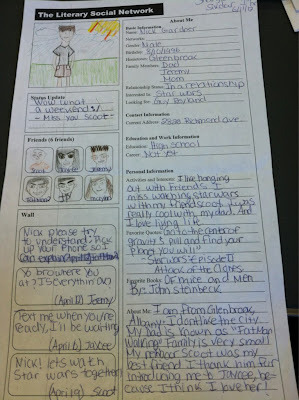 The Literary Social Network
About Me
Basic Information
Name: Nick Gardner
Networks:
Gender: Male
Birthdate:
Hometown: Greenbrook
Family Members: Dad
Jeremy
Mom
Relationship Status: In a relationship
Interested In: Star wars
Looking For:
Contact Information
Current Address: Richmond ave.
Education and Work Information
Education: High school
Career: Not yet
Personal Information
Activities and Interests: I like hanging
out with friends. I
miss watching star wars
with my friend scoot. I was
really cool with my dad. And
I love living life
Favorite Quotes: Go to the center of
gravity's pull and find your
planet you will"
- Star wars Episode II
Attack of the Clones
Favorite Books: Of Mice and Men
By: John Steinbeck
About Me: I am from Glenbrook,
Albany. I don't like the city.
Dad is known as "Fat Man
Walking". Family is very small!
My neighbor Scoot was my
best friend. I thank him for
introducing me to Jaycee, be-
cause I think I love her!
Status Update
Wow what
a weekend!
- Miss you Scoot -
Friends (6 friends)
Scoot
Jaycee
Jeremy
Wall
Nick please try
to understand. Pick
up your phone so I
can explain
Yo bro where you
at? Is everything OK
(April 12) Jeremy
Text me when you're
ready, I'll be waiting
(April 6) Jaycee
Nick! lets watch
Star wars together
(April 9) Scoot